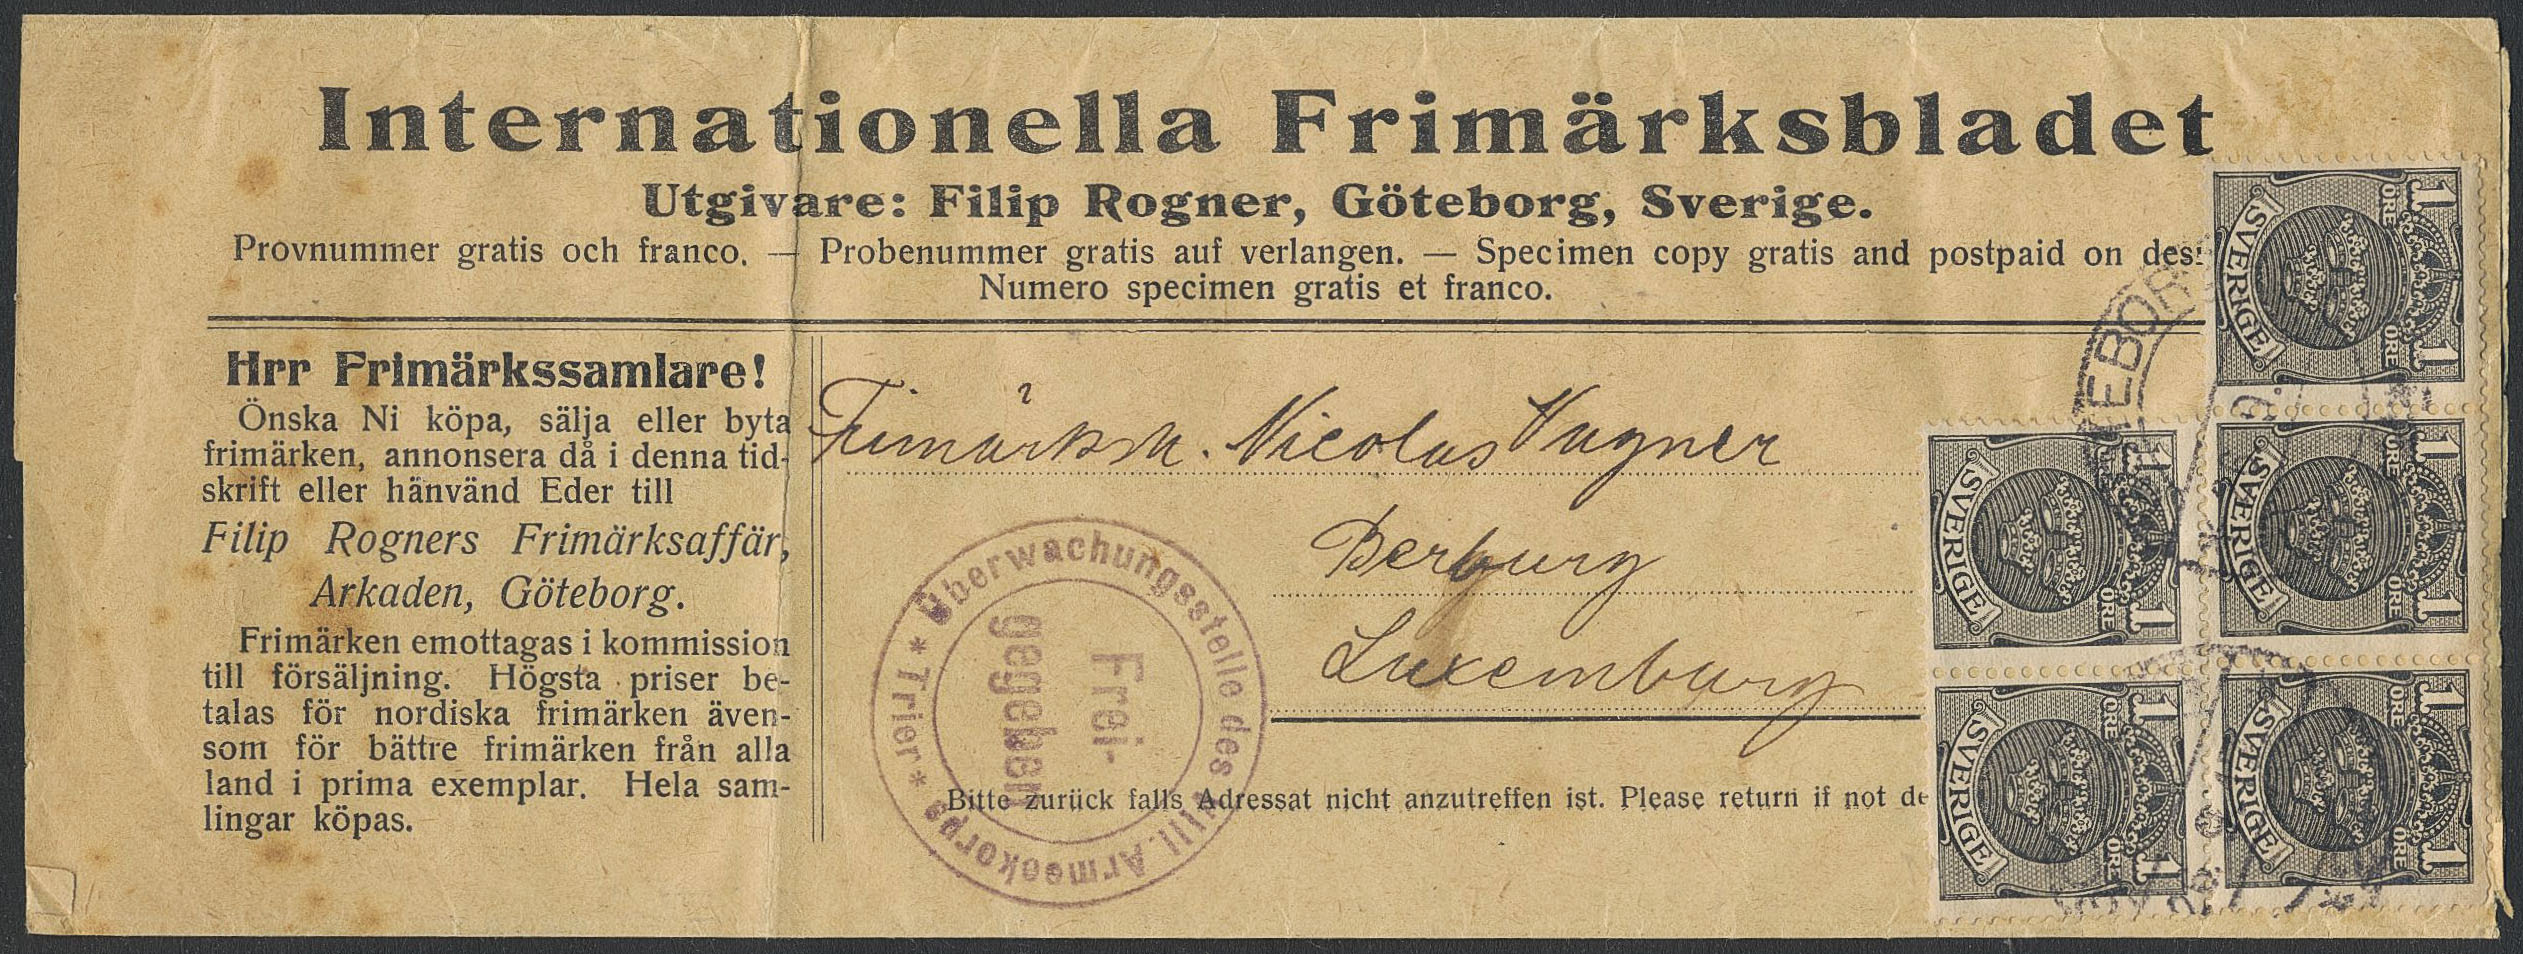 Internationella Frimärksbladet
Utgivare: Filip Rogner, Göteborg, Sverige.
Provnummer gratis och franco. — Probenummer gratis auf verlangen. — Specimen copy gratis and postpaid on desi
Numero specimen gratis et franco.
Hrr Frimärkssamlare!
Önska Ni köpa, sälja eller byta
frimärken, annonsera då i denna tid-
skrift eller hänvänd Eder till
Filip Rogners Frimärksaffär,
Arkaden, Göteborg.
Frimärken emottagas i kommission
till försäljning. Högsta priser be-
talas för nordiska frimärken även-
som för bättre frimärken från alla
land i prima exemplar. Hela sam-
lingar köpas.
Nicolas Wagner
Berburg
Luxemburg
Bitte zurück falls Adressat nicht anzutreffen ist. Please return if not de
Überwachungsstelle des VIII. Armeekorps * Trier *
Frei-
gegeben
TEBOR
1 ÖRE SVERIGE ÖRE 1
1 ÖRE SVERIGE ÖRE 1
1 ÖRE SVERIGE ÖRE 1
1 ÖRE SVERIGE ÖRE 1
1 ÖRE SVERIGE ÖRE 1